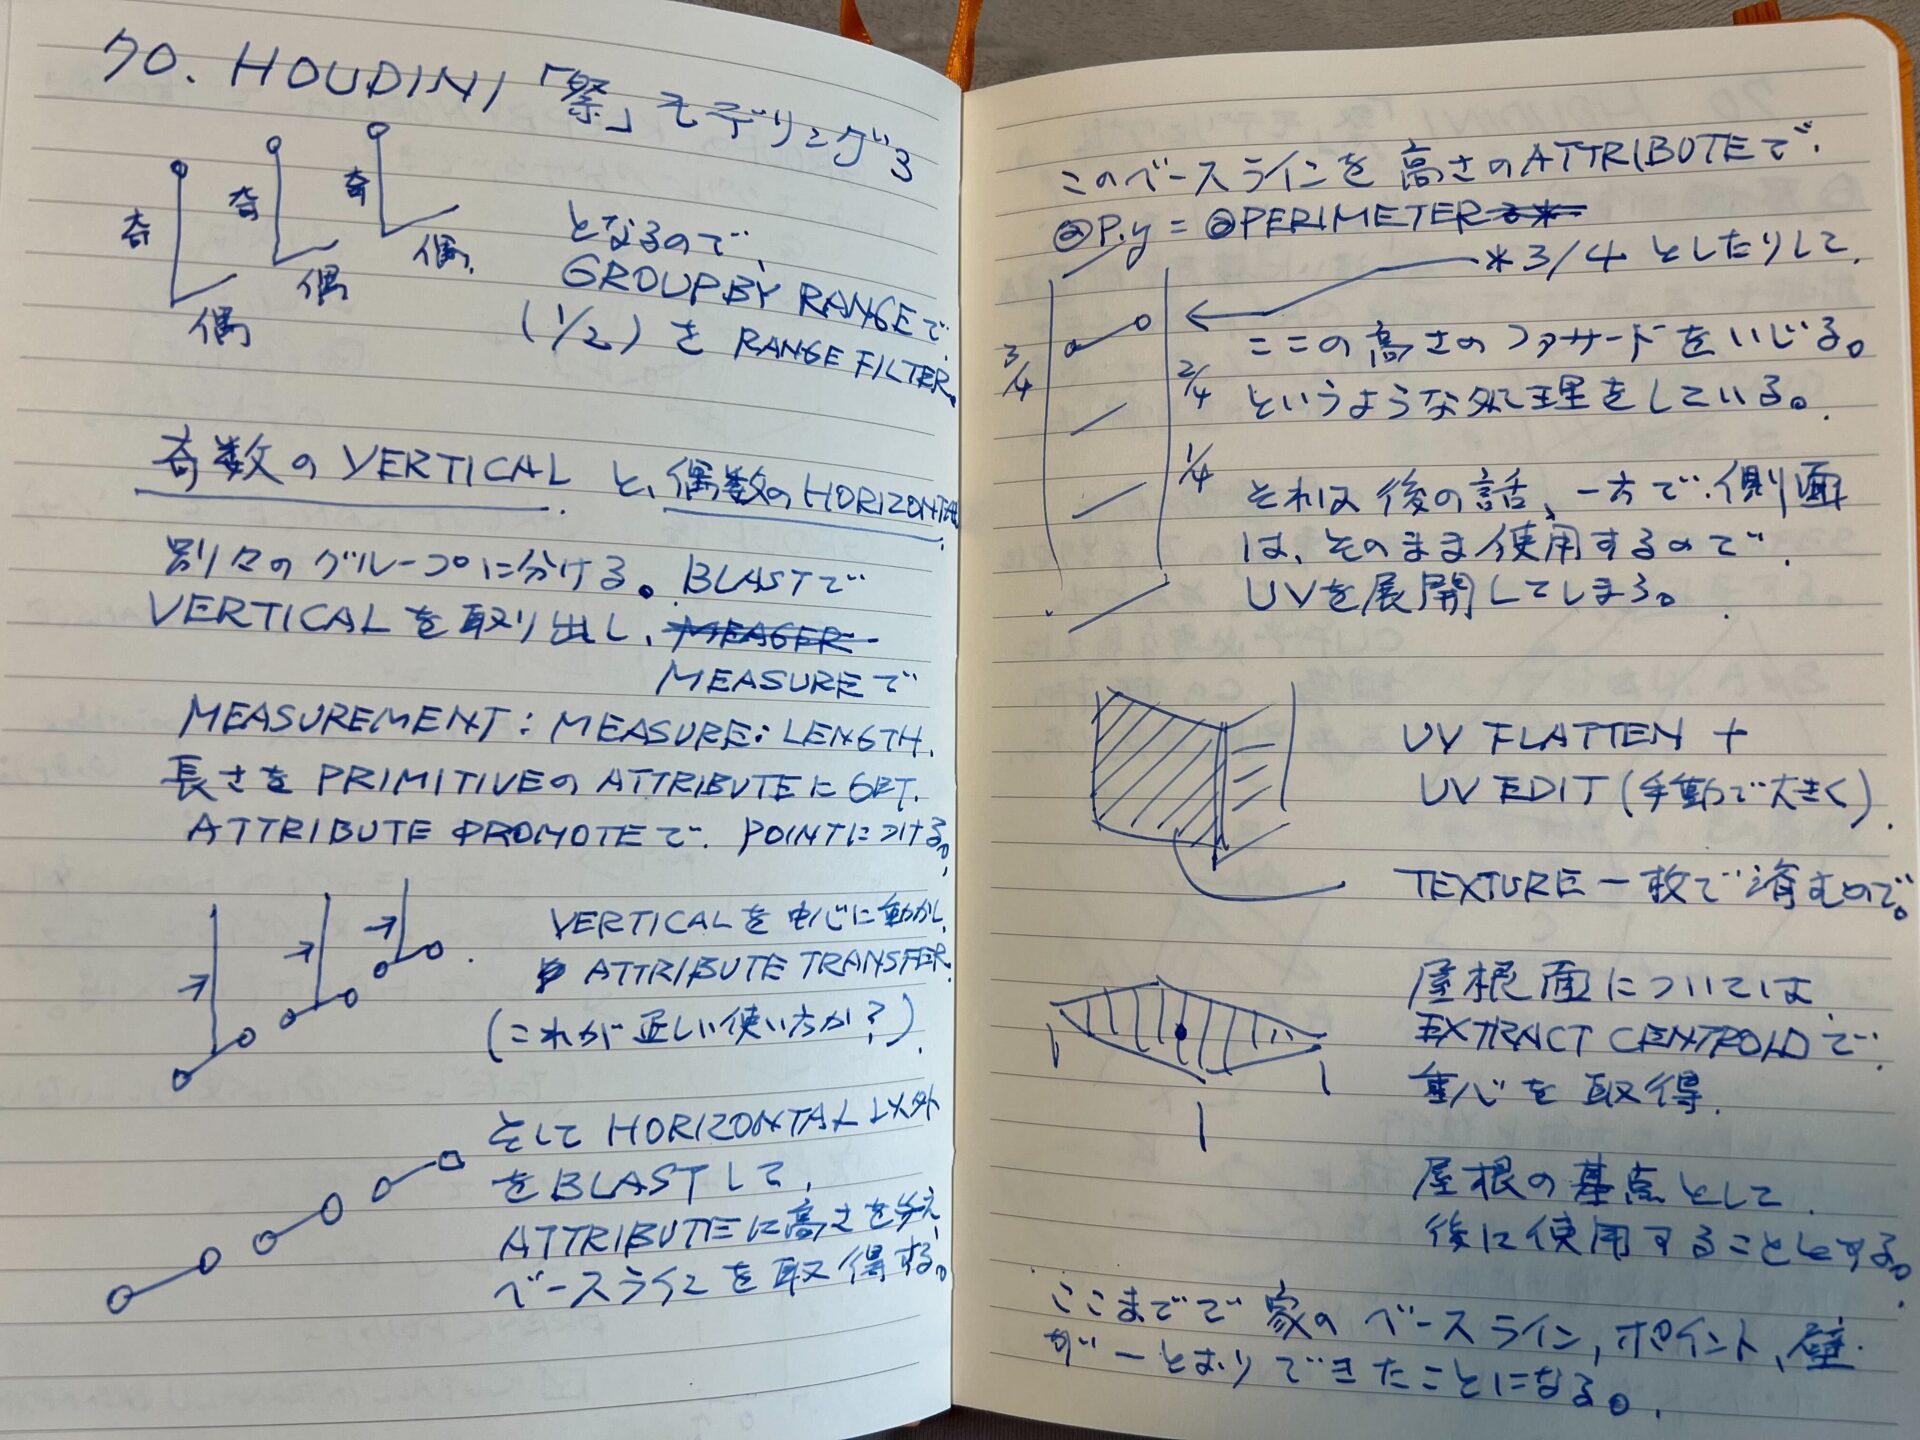 70. HOUDINI「祭」モデリング3
奇
奇
奇
偶
偶
偶.
となるので、
GROUP BY RANGEで.
(1/2) を RANGE FILTER.
奇数の VERTICAL と、偶数の HORIZONTAL.
別々のグループに分ける。BLASTで
VERTICALを取り出し、MEASER
MEASUREで
MEASUREMENT: MEASURE: LENGTH.
長さを PRIMITIVEの ATTRIBUTEに GET.
ATTRIBUTE PROMOTEで. POINTにつける。
VERTICALを中心に動かし.
ATTRIBUTE TRANSFER.
(これが正しい使い方か?).
そして HORIZONTAL以外
を BLASTして,
ATTRIBUTEに高さを与え、
ベースラインを取得する。
このベースラインを高さのATTRIBUTEで.
@P.y = @PERIMETER
*3/4 としたりして.
3/4
2/4
1/4
ここの高さのファサードをいじる。
というような処理をしている。
それは後の話、一方で.側面
は、そのまま使用するので.
UVを展開してしまう。
UV FLATTEN +
UV EDIT (手動で大きく).
TEXTURE一枚で済むので。
屋根面については.
EXTRACT CENTROIDで.
重心を取得.
屋根の基点として.
後に使用することとする。
ここまでで家のベースライン,ポイント、壁.
が一とおりできたことになる。